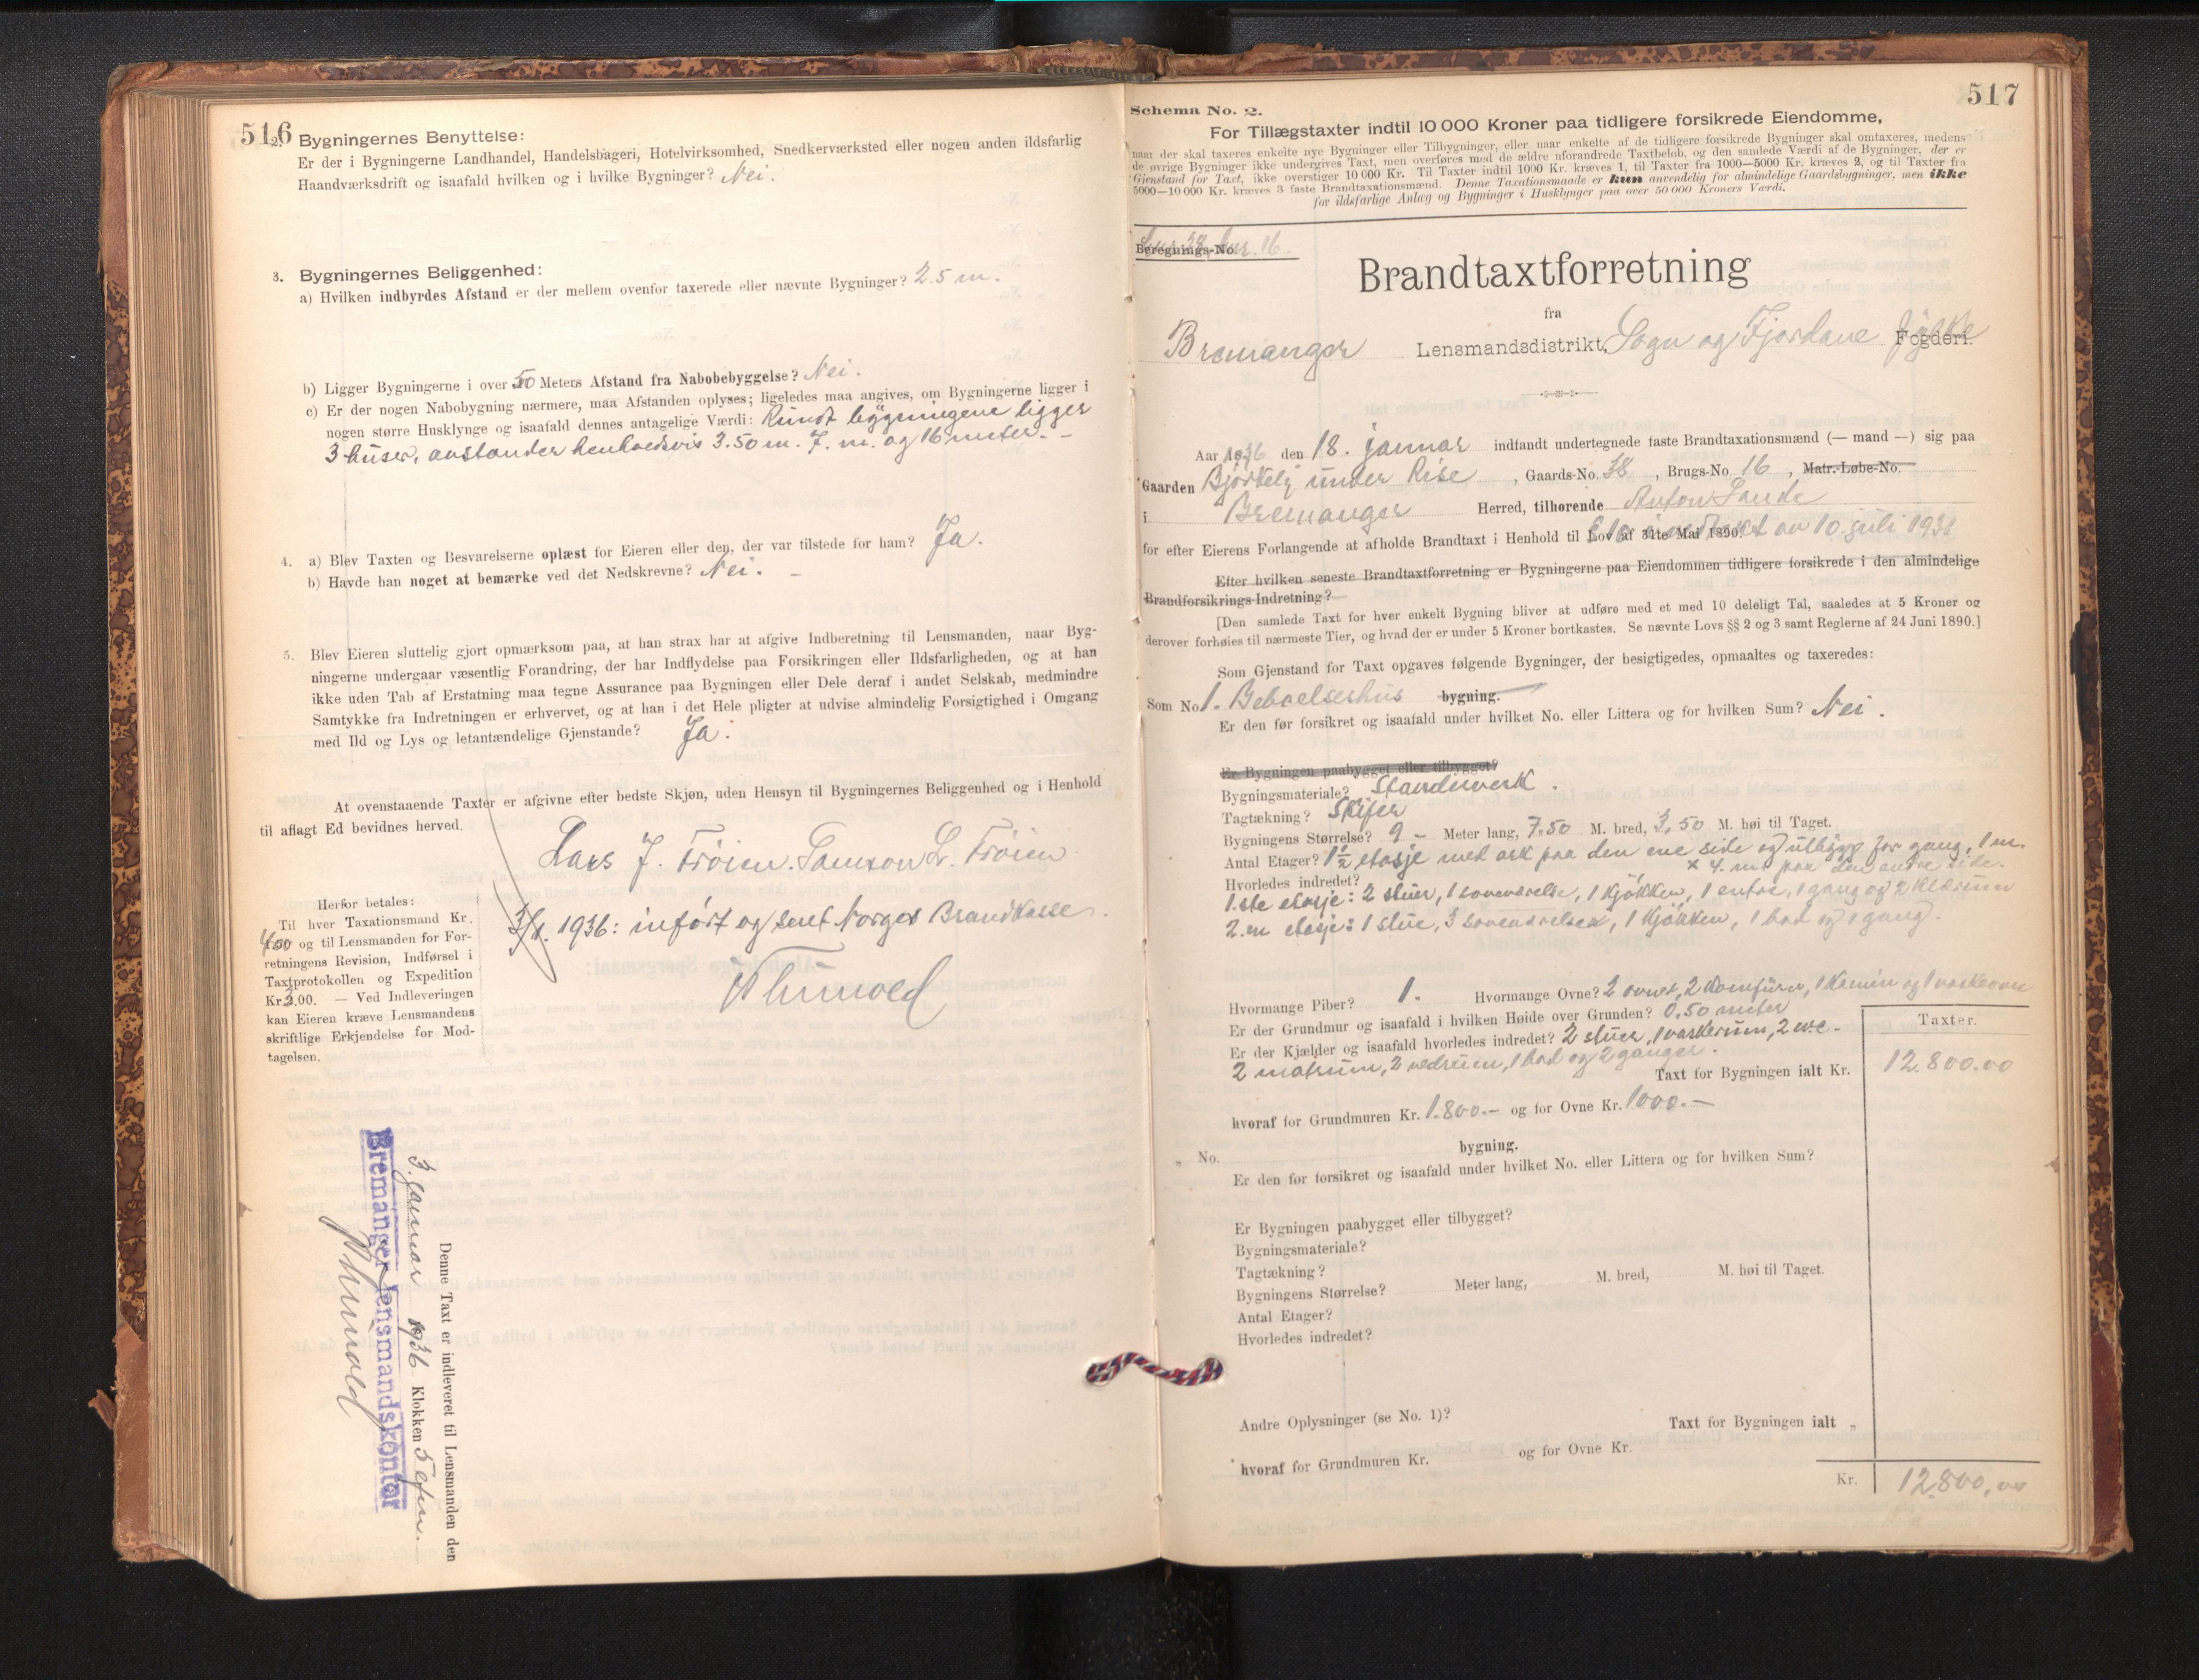 516
2. Bygningernes Benyttelse:
Er der i Bygningerne Landhandel, Handelsbageri, Hotelvirksomhed, Snedkerværksted eller nogen anden ildsfarlig
Haandværksdrift og isaafald hvilken og i hvilke Bygninger? Nei.
3. Bygningernes Beliggenhed:
a) Hvilken indbyrdes Afstand er der mellem ovenfor taxerede eller nævnte Bygninger? 25 m.
b) Ligger Bygningerne i over 50 Meters Afstand fra Nabobebyggelse? Nei.
c) Er der nogen Nabobygning nærmere, maa Afstanden oplyses; ligeledes maa angives, om Bygningerne ligger i
nogen større Husklynge og isaafald dennes antagelige Værdi: Rundt bygningene ligger
3 huser, avstander henholdsvis 3.50 m. 7. m. og 16 meter. –
4. a) Blev Taxten og Besvarelserne oplæst for Eieren eller den, der var tilstede for ham? Ja.
b) Havde han noget at bemærke ved det Nedskrevne? Nei. –
5. Blev Eieren sluttelig gjort opmærksom paa, at han strax har at afgive Indberetning til Lensmanden, naar Byg-
ningerne undergaar væsentlig Forandring, der har Indflydelse paa Forsikringen eller Ildsfarligheden, og at han
ikke uden Tab af Erstatning maa tegne Assurance paa Bygningen eller Dele deraf i andet Selskab, medmindre
Samtykke fra Indretningen er erhvervet, og at han i det Hele pligter at udvise almindelig Forsigtighed i Omgang
med Ild og Lys og letantændelige Gjenstande? Ja.
At ovenstaaende Taxter er afgivne efter bedste Skjøn, uden Hensyn til Bygningernes Beliggenhed og i Henhold
til aflagt Ed bevidnes herved.
Lars J. Frøien. Samson L. Frøien
3/1. 1936: inført og sent Norges Brandkasse.
Herfor betales:
Til hver Taxationsmand Kr.
4.00 og til Lensmanden for For-
retningens Revision, Indførsel i
Taxtprotokollen og Expedition
Kr. 3.00. — Ved Indleveringen
kan Eieren kræve Lensmandens
skriftlige Erkjendelse for Mod-
tagelsen.
Denne Taxt er indleveret til Lensmanden den
3. januar 1936 Klokken 5 efm.
Bremanger lensmandskontor
517
Schema No. 2.
For Tillægstaxter indtil 10 000 Kroner paa tidligere forsikrede Eiendomme,
naar der skal taxeres enkelte nye Bygninger eller Tilbygninger, eller naar enkelte af de tidligere forsikrede Bygninger skal omtaxeres, medens
de øvrige Bygninger ikke undergives Taxt, men overføres med de ældre uforandrede Taxtbeløb, og den samlede Værdi af de Bygninger, der er
Gjenstand for Taxt, ikke overstiger 10 000 Kr. Til Taxter indtil 1000 Kr. kræves 1, til Taxter fra 1000—5000 Kr. kræves 2, og til Taxter fra
5000—10 000 Kr. kræves 3 faste Brandtaxationsmænd. Denne Taxationsmaade er kun anvendelig for almindelige Gaardsbygninger, men ikke
for ildsfarlige Anlæg og Bygninger i Husklynger paa over 50 000 Kroners Værdi.
Beregnings-No. 38 16.
Brandtaxtforretning
fra
Bremanger Lensmandsdistrikt, Sogn og Fjordane fylke Fogderi.
Aar 1936 den 18. januar indfandt undertegnede faste Brandtaxationsmænd (— mand —) sig paa
Gaarden Bjørkely under Rise, Gaards-No. 38, Brugs-No 16, Matr.-Løbe-No.
i Bremanger Herred, tilhørende Anton Sande
for efter Eierens Forlangende at afholde Brandtaxt i Henhold til Lov af 31te Mai 1890. av 10. juli 1931
Efter hvilken seneste Brandtaxtforretning er Bygningerne paa Eiendommen tidligere forsikrede i den almindelige
Brandforsikrings-Indretning?
[Den samlede Taxt for hver enkelt Bygning bliver at udføre med et med 10 deleligt Tal, saaledes at 5 Kroner og
derover forhøies til nærmeste Tier, og hvad der er under 5 Kroner bortkastes. Se nævnte Lovs §§ 2 og 3 samt Reglerne af 24 Juni 1890.]
Som Gjenstand for Taxt opgaves følgende Bygninger, der besigtigedes, opmaaltes og taxeredes:
Som No 1. Beboelseshus bygning.
Er den før forsikret og isaafald under hvilket No. eller Littera og for hvilken Sum? Nei.
Er Bygningen paabygget eller tilbygget?
Bygningsmateriale? Standerverk.
Tagtækning? Skifer
Bygningens Størrelse? 9 – Meter lang, 7.50 M. bred, 3,50 M. høi til Taget.
Antal Etager? 1½ etasje med ark paa den ene side og utbygg for gang, 1 m.
x 4. m. paa den andre side.
Hvorledes indredet?
1.ste etasje: 2 stuer, 1 soveværelse, 1 kjøkken, 1 entre, 1 gang og 2 klærum
2.en etasje: 1 stue, 3 soveværelser, 1 kjøkken, 1 bad og 1 gang.
Hvormange Piber? 1. Hvormange Ovne? 2 ovner, 2 komfürer, 1 kamin og 1 vaskeovn
Er der Grundmur og isaafald i hvilken Høide over Grunden? 0.50 meter
Er der Kjælder og isaafald hvorledes indredet? 2 stuer, 1 vaskerum, 2 w.c.
2 matrum, 2 vedrum, 1 bod og 2 ganger.
Taxter.
Taxt for Bygningen ialt Kr. 12.800.00
hvoraf for Grundmuren Kr. 1.800.– og for Ovne Kr. 1000.–
„ No. bygning.
Er den før forsikret og isaafald under hvilket No. eller Littera og for hvilken Sum?
Er Bygningen paabygget eller tilbygget?
Bygningsmateriale?
Tagtækning?
Bygningens Størrelse? Meter lang, M. bred, M. høi til Taget.
Antal Etager?
Hvorledes indredet?
Andre Oplysninger (se No. 1)? Taxt for Bygningen ialt „
hvoraf for Grundmuren Kr. og for Ovne Kr.
Kr. 12.800,00